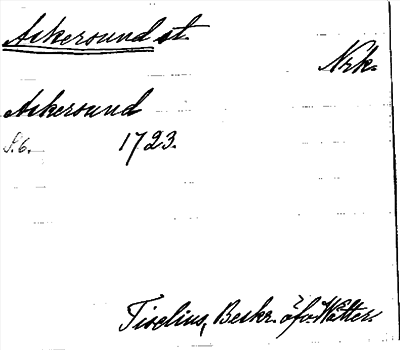 Askersund st.
Nrk.
Askersund
S. 6. 1723.
Tiselius, Beskr. öfv. Wätter.